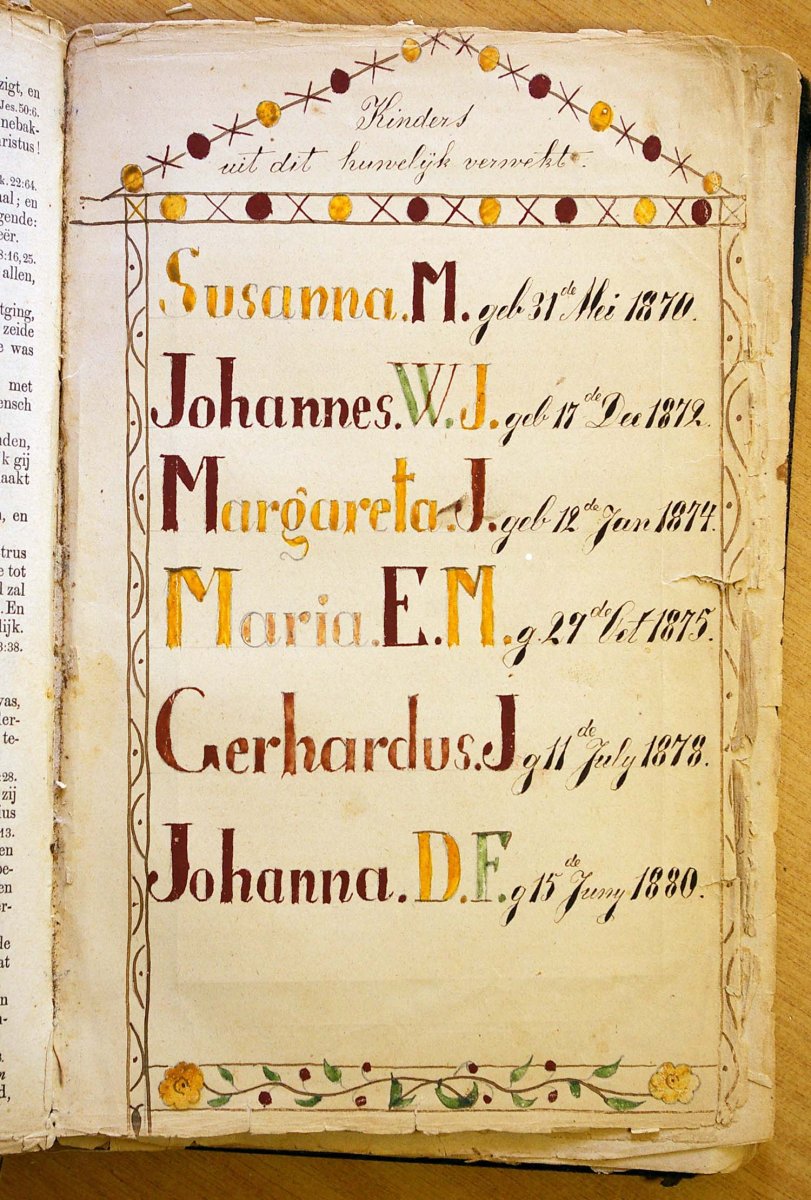 zigt, en
Jes. 50:6.
nebak-
aristus!
k. 22:64.
aal; en
gende:
eër.
8:16,25.
allen,
tging,
zeide
e was
met
ensch
nden,
k gij
aakt
n, en
trus
e tot
l zal
. En
lijk.
3:38.
vas,
ler-
te-
:28.
zij
ius
13.
en
oe-
en
er-
de
at
n
d,
Kinders
uit dit huwelijk verwekt.
Susanna. M. geb 31de Mei 1870.
Johannes. W. J. geb 17de Dec 1872.
Margareta. J. geb 12de Jan 1874.
Maria. E. M. g. 29de Oct 1875.
Gerhardus. J g 11de July 1878.
Johanna. D. F. g 15de Juny 1880.